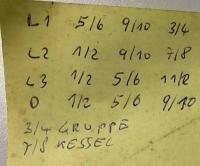 L1 5/6 9/10 3/4
L2 1/2 9/10 7/8
L3 1/2 5/6 11/12
0 1/2 5/6 9/10
3/4 GRUPPE
7/8 KESSEL